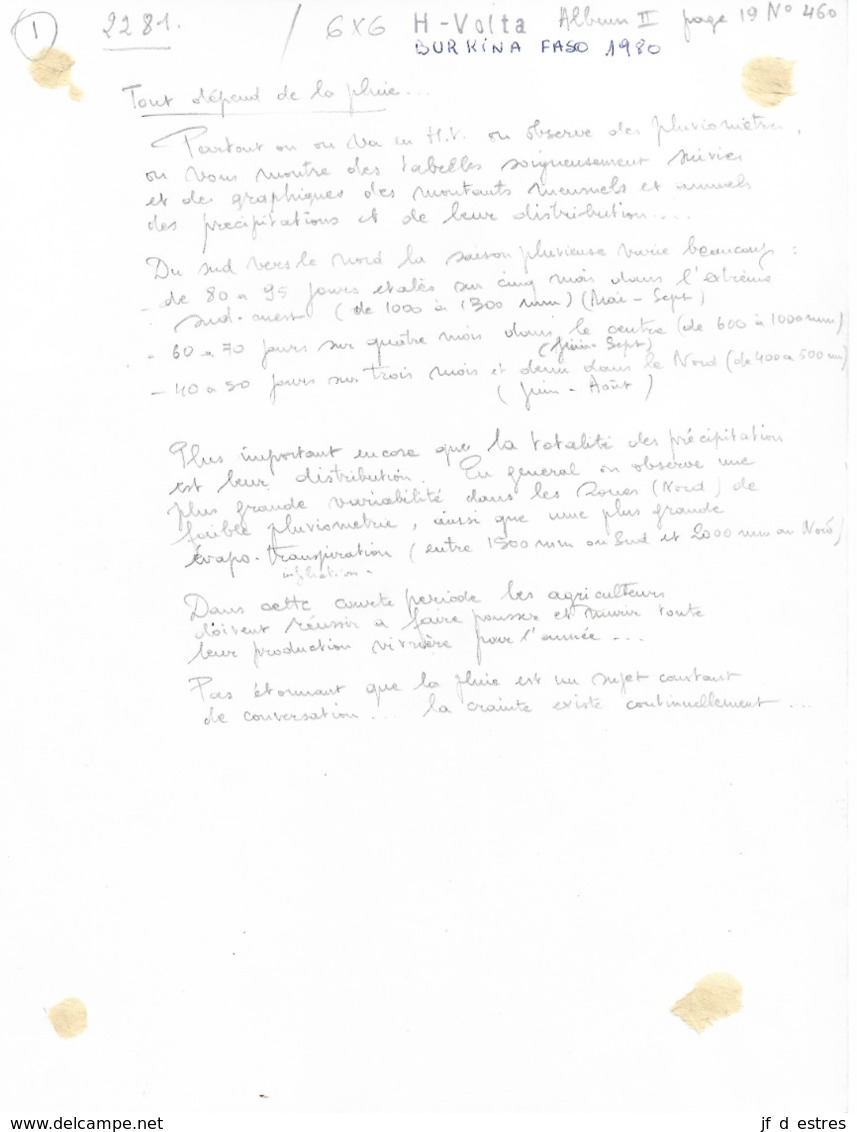 1 2281. / 6x6 H-Volta Album II page 19 N° 460
BURKINA FASO 1980
Tout dépend de la pluie...
Partout où on va en H.V. on observe des pluviomètres,
on vous montre des tabelles soigneusement suivies
et des graphiques des montants mensuels et annuels
des précipitations et de leur distribution....
Du sud vers le Nord la saison pluvieuse varie beaucoup :
- de 80 a 95 jours etalés sur cinq mois dans l'extrème
sud-ouest (de 1000 à 1300 mm) (Mai - Sept)
- 60 a 70 jours sur quatre mois dans le centre (de 600 à 1000 mm)
(Juin - Sept)
- 40 a 50 jours sur trois mois et demi dans le Nord (de 400 a 500 mm)
(Juin - Août)
Plus important encore que la totalité des précipitation
est leur distribution. En general on observe une
plus grande variabilité dans les Zones (Nord) de
faible pluviometrie, ainsi que une plus grande
évapo-transpiration (entre 1500 mm au Sud et 2000 mm au Nord)
Dans cette courte periode les agriculteurs
doivent réussir a faire pousser et murir toute
leur production vivrière pour l'année ...
Pas étonnant que la pluie est un sujet constant
de conversation... la crainte existe continuellement ...
www.delcampe.net
jf d estres